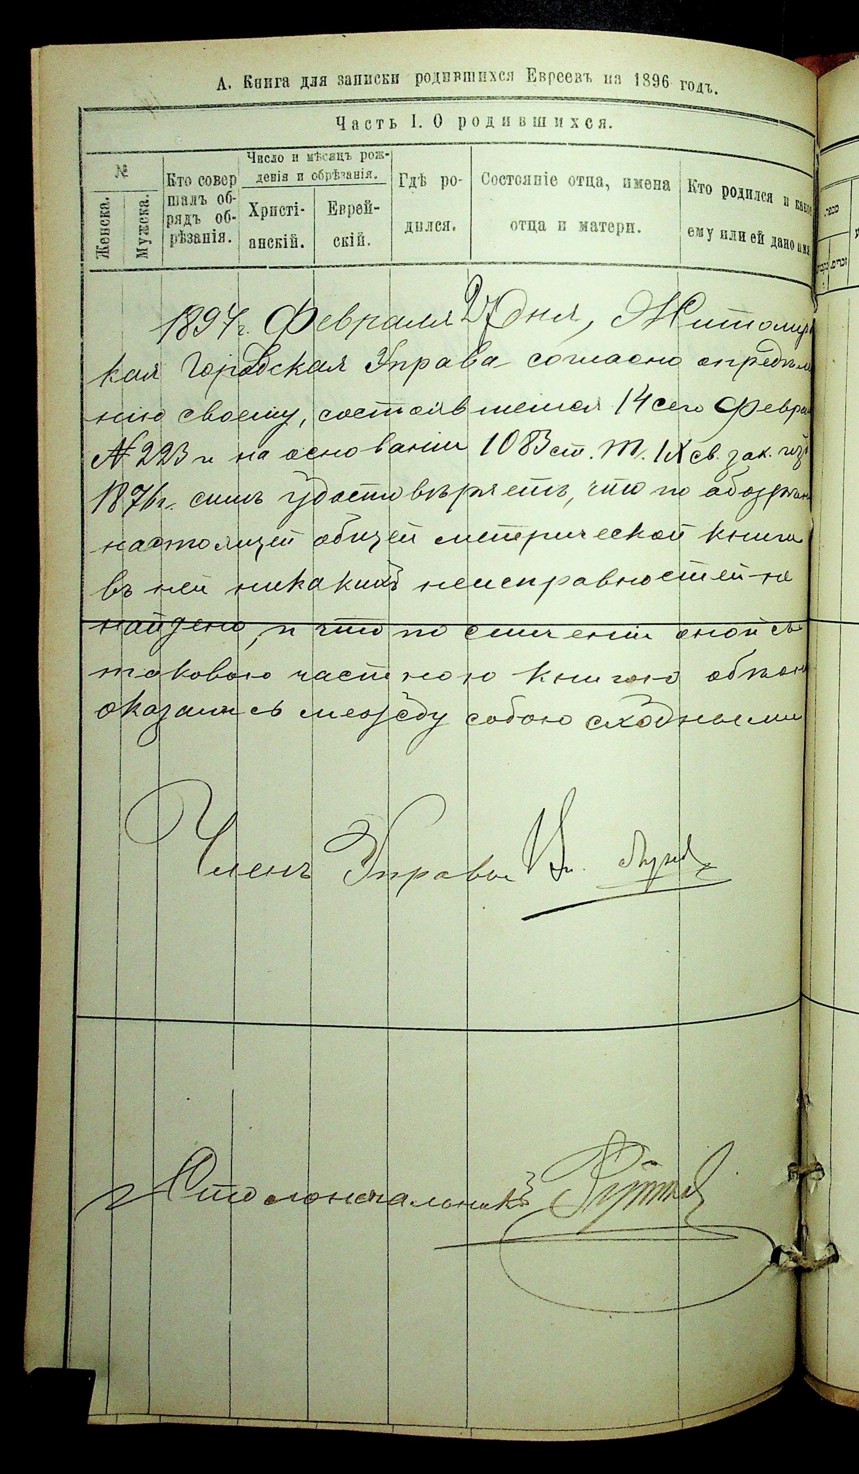 А. Книга для записки родившихся Евреевъ на 1896 годъ.
Часть I. О родившихся.
№
Женска.
Мужска.
Кто совер
шалъ об-
рядъ об-
рѣзанія.
Число и мѣсяцъ рож-
денія и обрѣзанія.
Христі-
анскій.
Еврей-
скій.
Гдѣ ро-
дился.
Состояніе отца, имена
отца и матери.
Кто родился и какое
ему или ей дано имя
1897 г. Февраля 27 Дня, Житомирс
кая Городская Управа согласно опредѣле
нію своему, состоявшемся 14 сего Февра
№ 223 и на основаніи 1083 ст. Т. IX св. зак. изд
1876 г. симъ удостовѣряетъ, что по обозрѣнi
настоящей общей метрической книги
въ ней никакихъ неисправностей не
найдено, и что по сличеніи оной съ
таковою частною книгою обѣ они
оказались между собою сходными
Членъ Управы
Столоначальникъ